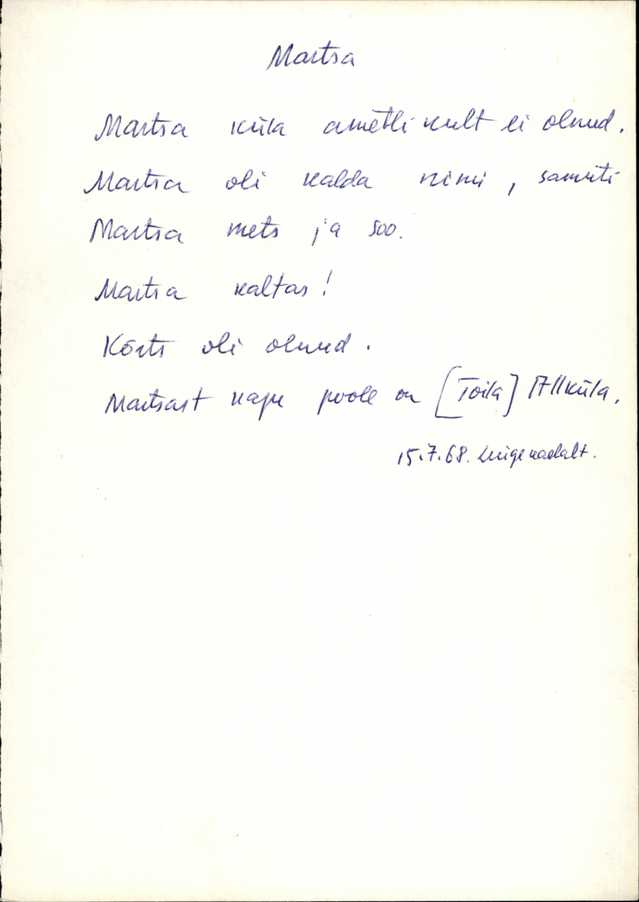 Martsa
Martsa küla ametlikult ei olnud.
Martsa oli kalda nimi, samuti
Martsa mets ja soo.
Martsa kaltas!
Kõrts oli olnud.
Martsast kapu poole on [Toila] Allküla.
15.7.68. Lüigenadalt.